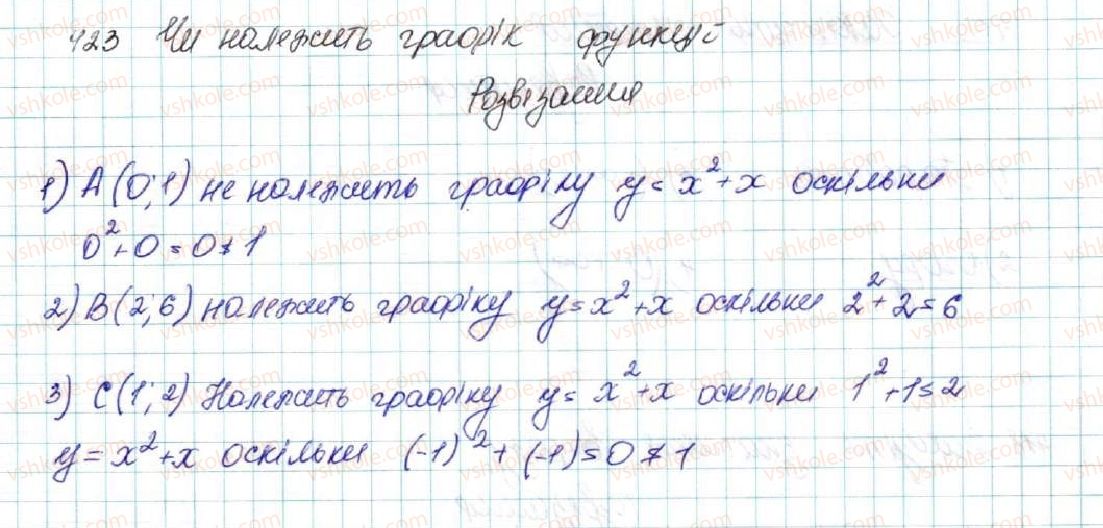 423 Чи належить графік функції
Розвізання
1) A (0; 1) не належить графіку y = x² + x оскільки
0² + 0 = 0 ≠ 1
2) B (2; 6) належить графіку y = x² + x оскільки 2² + 2 = 6
3) C (1; 2) Належить графіку y = x² + x оскільки 1² + 1 = 2
y = x² + x оскільки (-1)² + (-1) = 0 ≠ 1